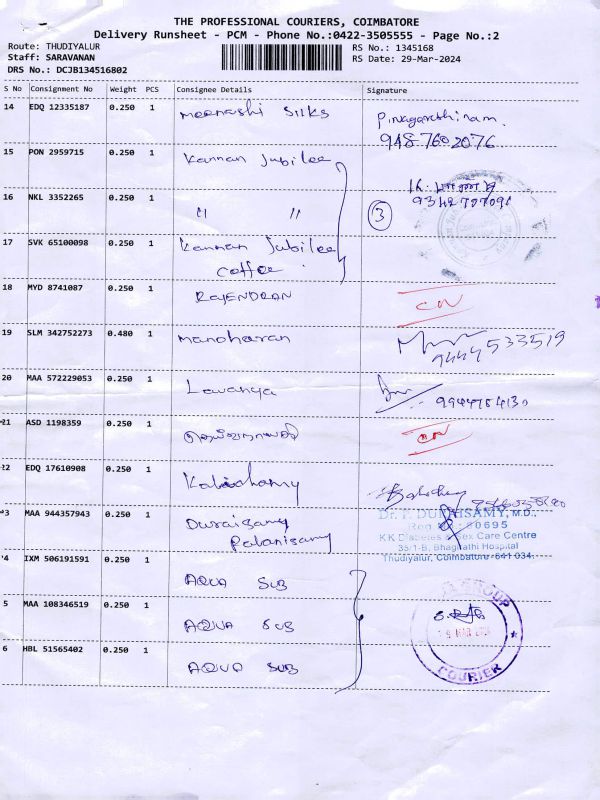 THE PROFESSIONAL COURIERS, COIMBATORE
Delivery Runsheet - PCM - Phone No.:0422-3505555 - Page No.:2
Route: THUDIYALUR
Staff: SARAVANAN
DRS No.: DCJB134516802
RS No.: 1345168
RS Date: 29-Mar-2024
S No Consignment No Weight PCS Consignee Details Signature
14 EDQ 12335187 0.250 1 meenashi SILKS
948 760 2076
15 PON 2959715 0.250 1 Kannan Jubilee
16 NKL 3352265 0.250 1 " " 3
17 SVK 65100098 0.250 1 Kannan Jubilee
coffee
18 MYD 8741087 0.250 1 RAJENDRAN CN
19 SLM 342752273 0.480 1 manoharan
9444533519
20 MAA 572229053 0.250 1 Lavanya
21 ASD 1198359 0.250 1 CN
22 EDQ 17610908 0.250 1 Kalichamy
3 MAA 944357943 0.250 1 Duraisamy
Palanisamy
Dr. P. DURAISAMY, M.D.,
KK Diabetes & Sex Care Centre
35/1-B, Bhagathi Hospital
Thudiyalur, Coimbatore-641 034.
4 IXM 506191591 0.250 1 AQUA SUB
5 MAA 108346519 0.250 1 AQUA SUB
6 HBL 51565402 0.250 1 AQUA SUB
GROUP
COURIER